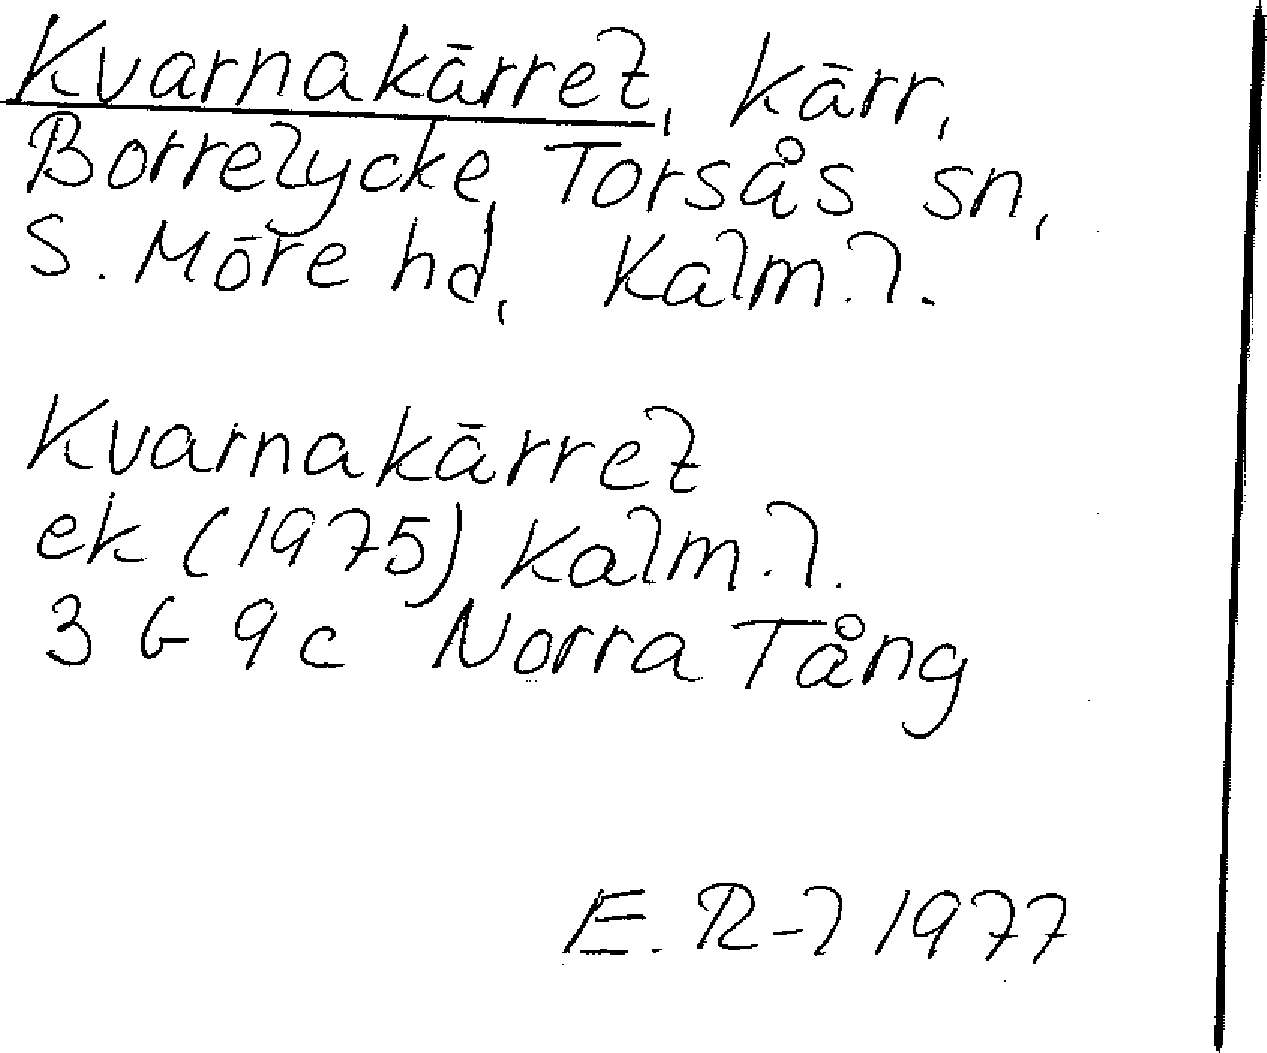 Kvarnakärret, kärr,
Borrelycke, Torsås sn,
S. Möre hd, Kalm. l.
Kvarnakärret
ek (1975) Kalm. l.
3 G 9 c Norra Tång
E. R-l 1977